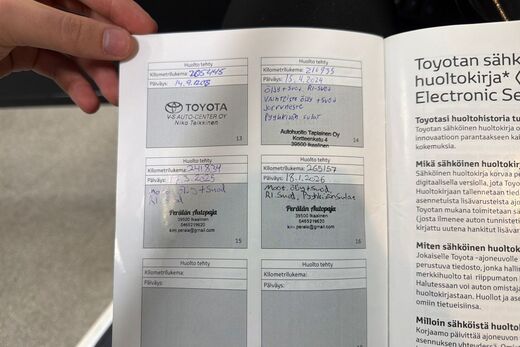 Huolto tehty
Kilometrilukema: 205445
Päiväys:
TOYOTA
V-S AUTO-CENTER OY
Niko Teikkinen
13
Huolto tehty
Kilometrilukema:
Päiväys: 15.4.2024
Öljy+suod. Ri-suod
Vaihteisto öljy +suod
Jarruneste
14
Autohuolto Tapiainen Oy
Kortteenkatu 4
39500 Ikaalinen
Huolto tehty
Kilometrilukema: 241834
Päiväys:
Moot. öljy+suod
Ri suod
Perälän Autopaja
39500 Ikaalinen
0465219620
kim.perala@gmail.com
15
Huolto tehty
Kilometrilukema: 265157
Päiväys: 18.1.2026
Moot. öljy+suod
RI suod,
Perälän Autopaja
39500 Ikaalinen
0465219620
kim.perala@gmail.com
16
Huolto tehty
Kilometrilukema:
Päiväys:
Huolto tehty
Kilometrilukema:
Päiväys:
Toyotan sähk
huoltokirja*
Electronic Se
Toyotasi huoltohistoria tu
Toyotan sähköinen huoltokirja o
innovaatioon perustuva
kokemuksia.
Mikä sähköinen huoltokirj
Sähköinen huoltokirja korvaa pe
digitaalisella versiolla, jota Toyo
Huoltokirjaan tallennetaan tied
asennetuista lisävarusteista ajon
Toyotan mukana toimitetaan sä
(josta ilmenee auton tunnistetie
kirjattu uutena hankitut lisävar
Miten sähköinen huoltokirj
Jokaiselle Toyota -ajoneuvolle
perustuva tiedosto, jonka hallin
merkkihuolto tai riippumaton
Halutessaan voi auton omistaja
huoltokirjastaan. Huollot ja ase
omiin tietueisiinsa.
Milloin sähköistä huoltokirj
Korjaamo päivittää ajoneuvon
asennuksen yhteydessä.